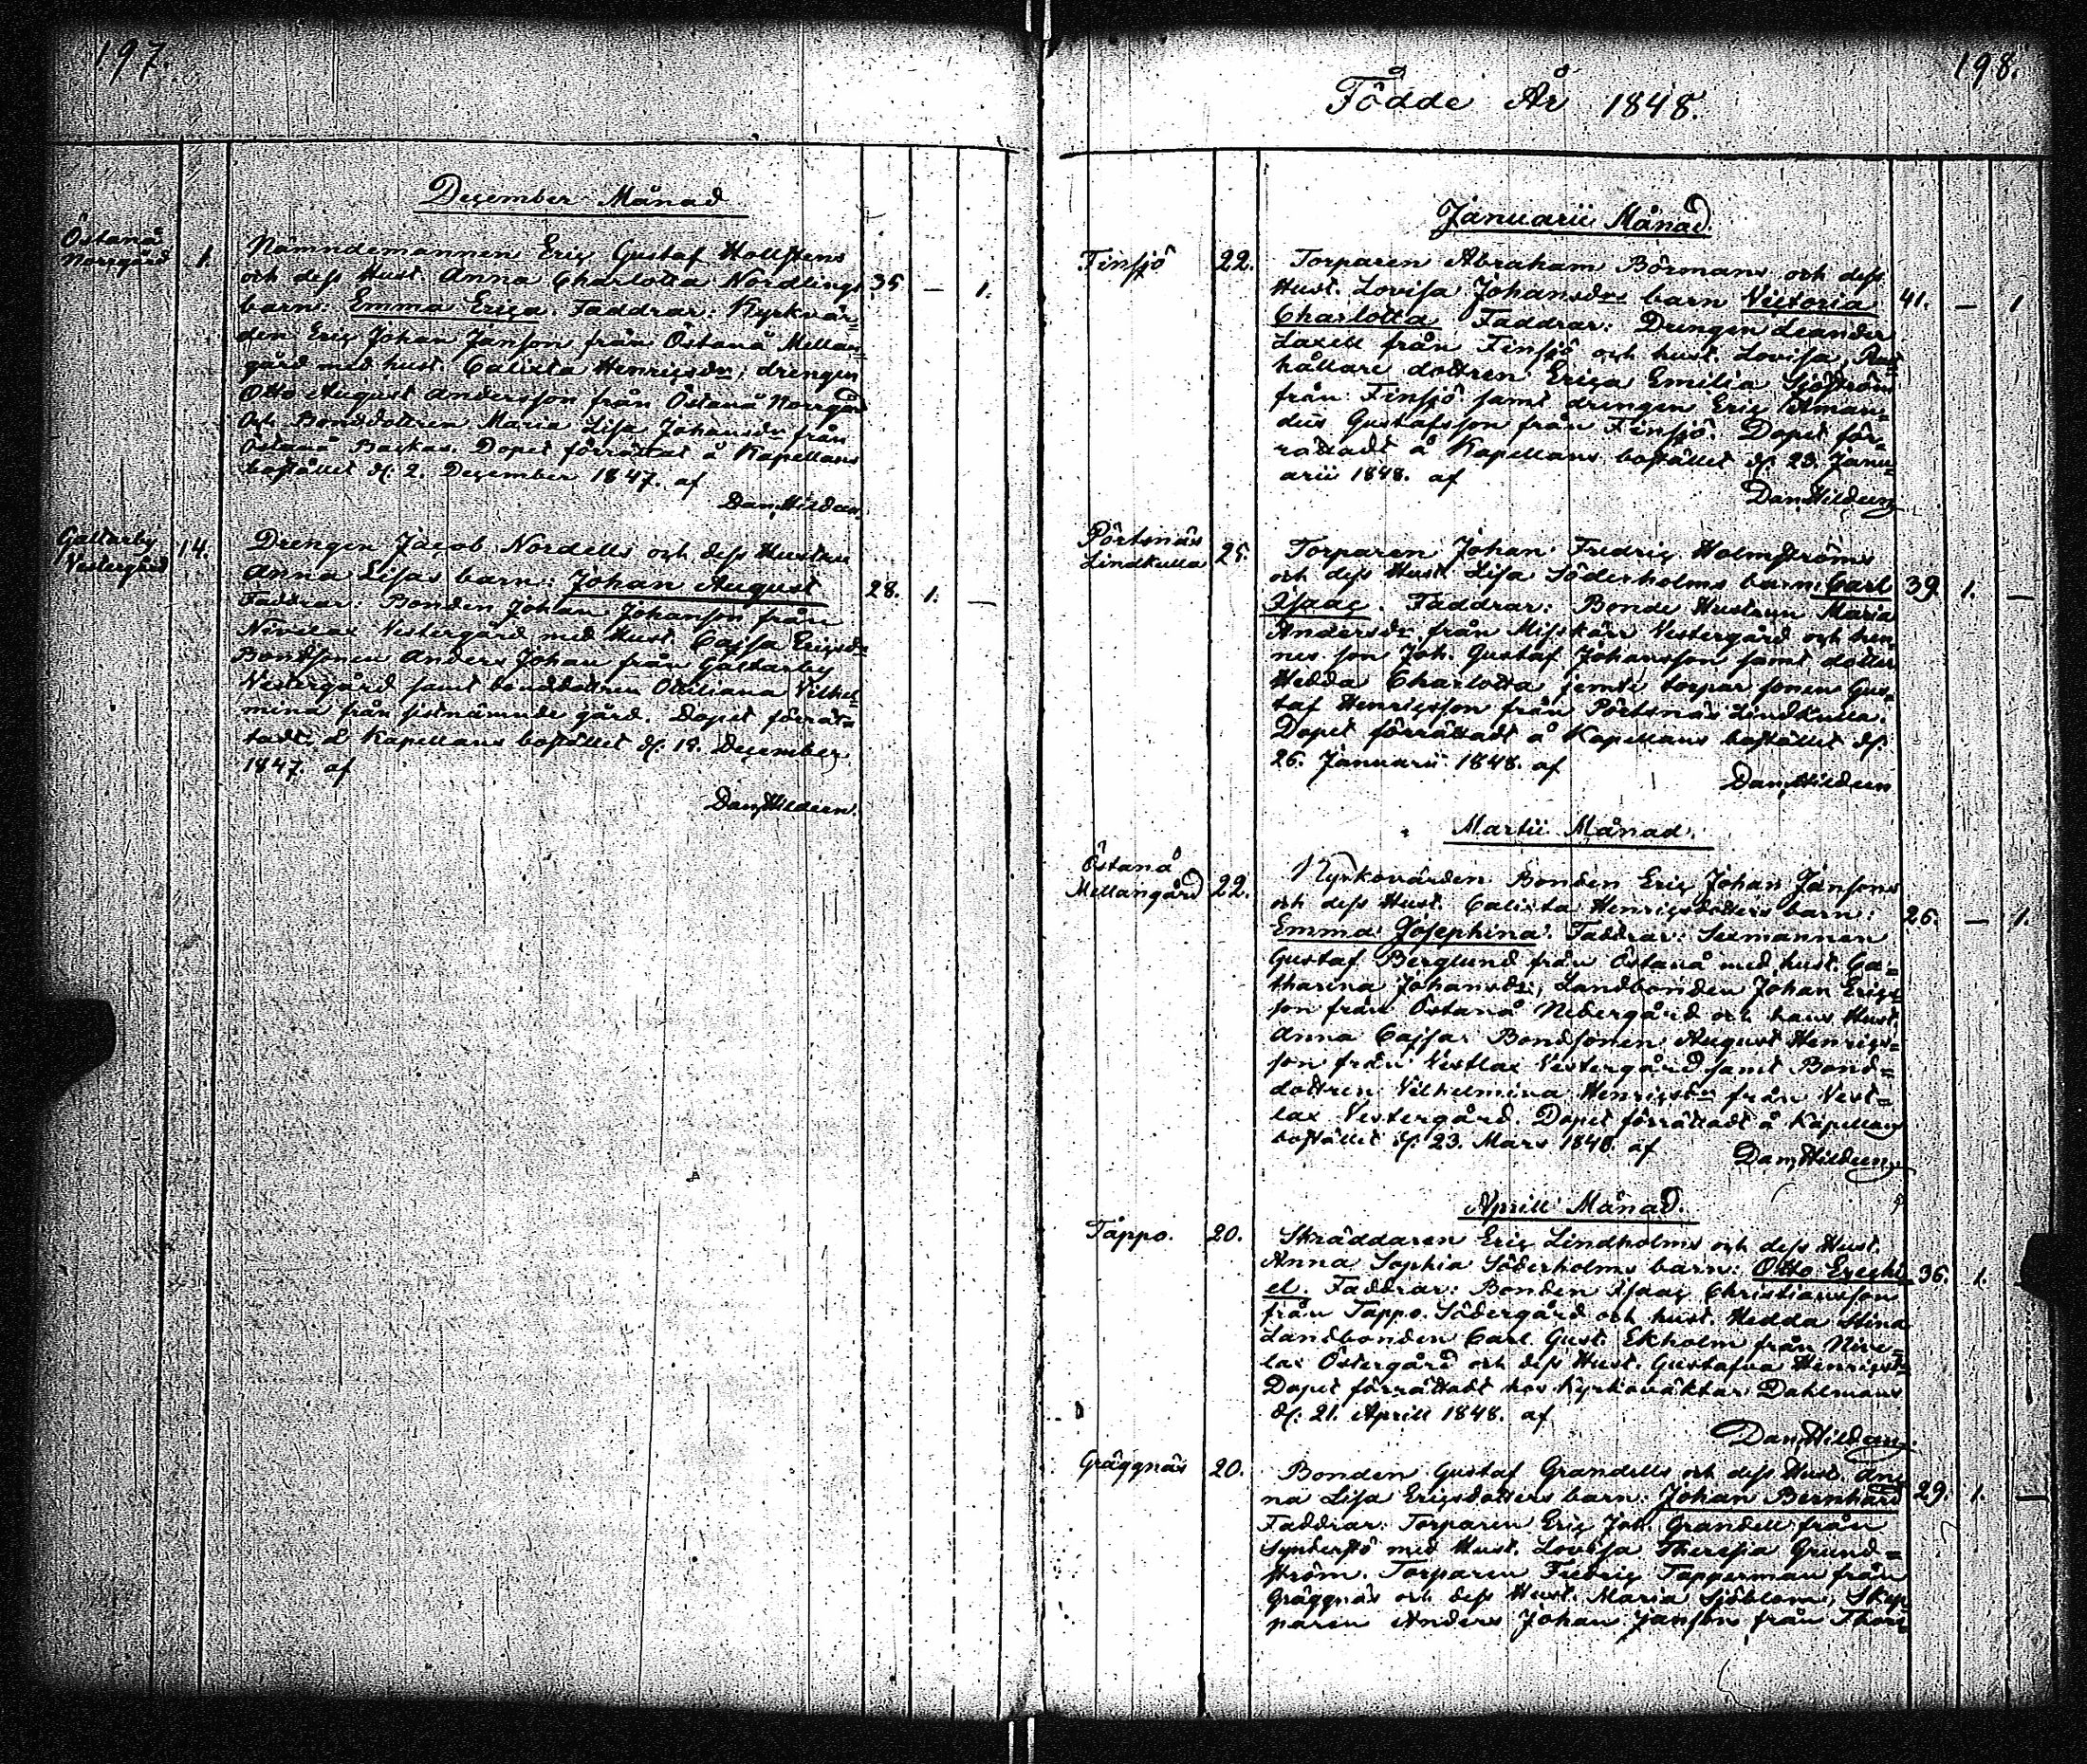 197.
December Månad
Östanå
Norrgård 1. Nämndemannen Eric Gustaf Hollstens
och dess Hust. Anna Charlotta Nordlings 35 — 1.
barn: Emma Erica. Faddrar: Kyrkvär=
den Eric Johan Janson från Östanå Mellan=
gård med hust. Calixta Henricsdr; drengen
Otto August Andersson från Östanå Norrgård
och Bonddottren Maria Lisa Johansdr från
Östanå Backas. Dopet förrättat å Kapellans
bostället d: 2. December 1847. af
Dan. Hildeen.
Galtarby
Vestergård 14. Drengen Jacob Nordells och dess Hustru
Anna Lisas barn: Johan August 28. 1. —
Faddrar: Bonden Johan Johanson från
Nivelax Vestergård med Hust. Cajsa Ericsdr
Bondsonen Anders Johan från Galtarby
Vestergård samt bonddottren Ottiliana Vilhel=
mina från sistnämnde gård. Dopet förrät=
tadt å Kapellans bostället d: 19. December
1847. af
Dan. Hildeen.
198.
Födde År 1848.
Januarii Månad.
Finsjö 22. Torparen Abraham Börmans och dess
Hust. Lovisa Johansdrs barn Victoria 41. — 1
Charlotta. Faddrar: Drengen Leander
Laxell från Finsjö och hust. Lovisa, Rust=
hållare dottren Erica Emilia Sjöström
från Finsjö samt drengen Eric Aman=
dus Gustafsson från Finsjö. Dopet för=
rättadt å Kapellans bostället d: 23. Janu=
arii 1848. af
Dan. Hildeen
Pörtsnäs
Lindkulla 25. Torparen Johan Fredric Holmströms
och dess Hust. Lisa Söderholms barn: Carl 39. 1. —
Isaac. Faddrar: Bonde Hustrun Maria
Andersdr från Misskärr Vestergård och hen
nes son Joh. Gustaf Johansson samt dotter
Hedda Charlotta jemte torpar sonen Gus=
taf Henricsson från Pörtsnäs Lindkulla.
Dopet förrättadt å Kapellans bostället d:
26. Januarii 1848. af
Dan. Hildeen
Martii Månad.
Östanå
Mellangård 22. Kyrkovärden Bonden Eric Johan Jansons
och dess Hust. Calixta Henricsdotters barn: 26. — 1.
Emma Josephina. Faddrar: Sexmannen
Gustaf Berglund från Östanå med hust. Ca=
tharina Johansdr; Landbonden Johan Erics=
son från Östanå Nedergård och hans Hust.
Anna Cajsa. Bondsonen August Henrics=
son från Vestlax Vestergård samt Bond=
dottren Vilhelmina Henricsdr från Vest=
lax Vestergård. Dopet förrättadt å Kapellans
bostället d: 23. Mars 1848. af
Dan. Hildeen
Aprill Månad.
Tappo. 20. Skräddaren Eric Lindholms och dess Hust.
Anna Sophia Söderholms barn: Otto Ezechi= 36. 1.
el. Faddrar: Bonden Isaac Christiansson
från Tappo Södergård och hust. Hedda Stina
Landbonden Carl Gust. Ekholm från Nive=
lax Östergård och dess Hust. Gustafva Henricsdr
Dopet förrättadt hos Kyrkoväktar Dahlmans
d: 21. Aprill 1848. af
Dan. Hildeen
Gräggnäs 20. Bonden Gustaf Grandells och dess Hust. An=
na Lisa Ericsdotters barn: Johan Bernhard 29. 1. —
Faddrar: Torparen Eric Joh. Grandell från
Synderstö med Hust. Lovisa Theresia Grund=
ström. Torparen Fredric Tapperman från
Gräggnäs och dess Hust. Maria Sjöblom, Skep
paren Anders Johan Janson från Thors